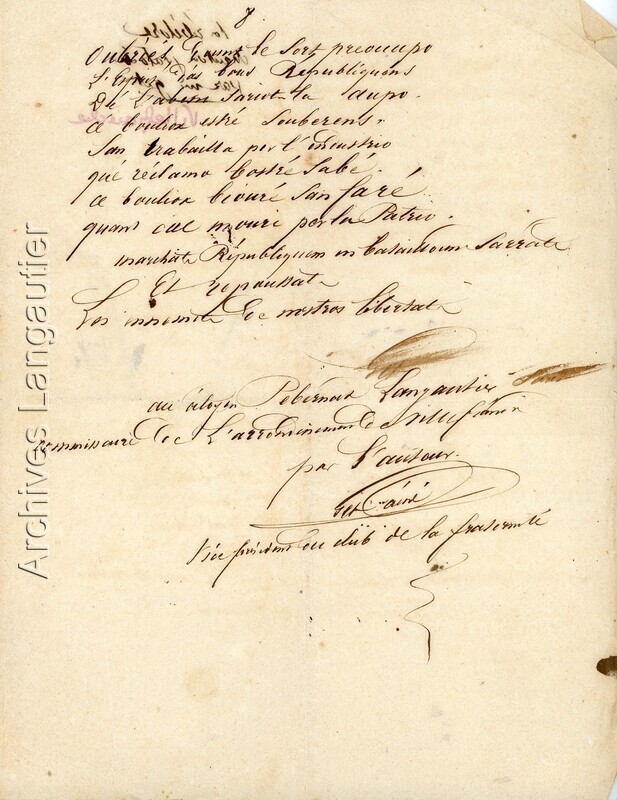 8
Oubriès dount le Sort preocupo
L'Esprit des bous Républiquens
Dé L'aben Sariot la Jaupo.
a boulion estré Souberens.
San trabailla per l'industrio
qué réclamo bostré Sabé.
a boulion biouré San faré
quant cal mouri per la Patrio.
marchats Républiquens en bataillouns Sarrats
Et repoussats
Les ennemits de nostros libertats
au citoyen Pebernad Langautier
commissaire de L'arrondissement de Villefranche
par L'auteur.
ainé
Vice président du club de la fraternité
Villefranche
Archives Langautier